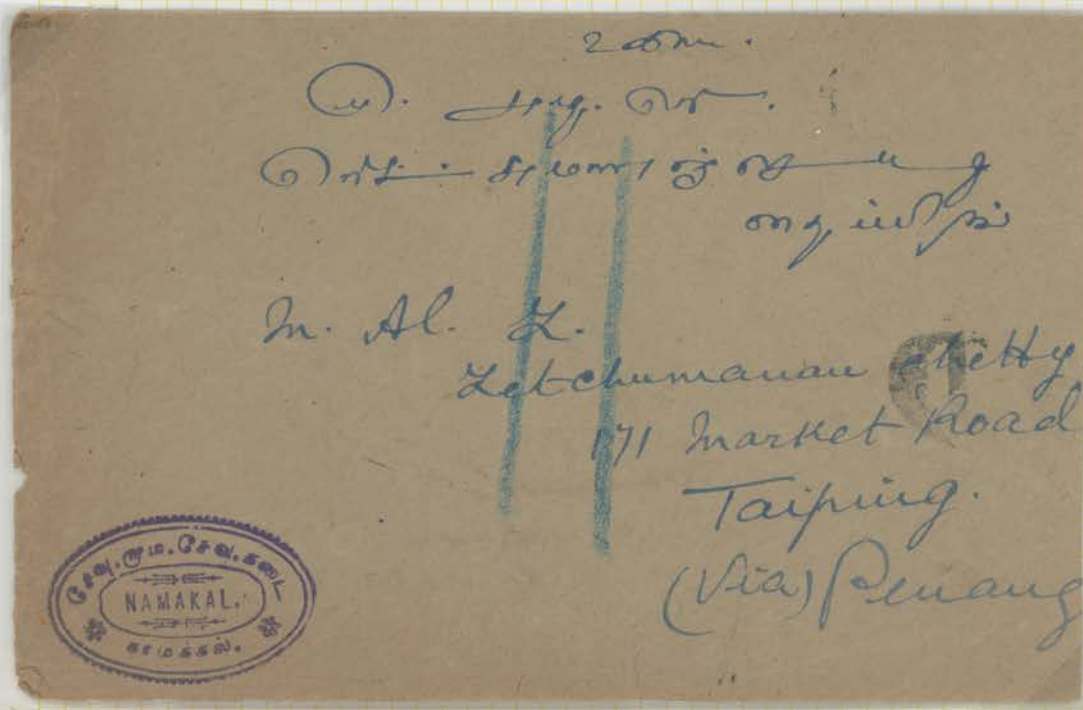 லெட்சுமணஞ் செட்டி
தைப்பிங்
M. Al. L.
Letchumanan Chetty
171 Market Road
Taiping.
(Via) Penang
சேவு.மும.சேவ.கடை
NAMAKAL.
நாமக்கல்.